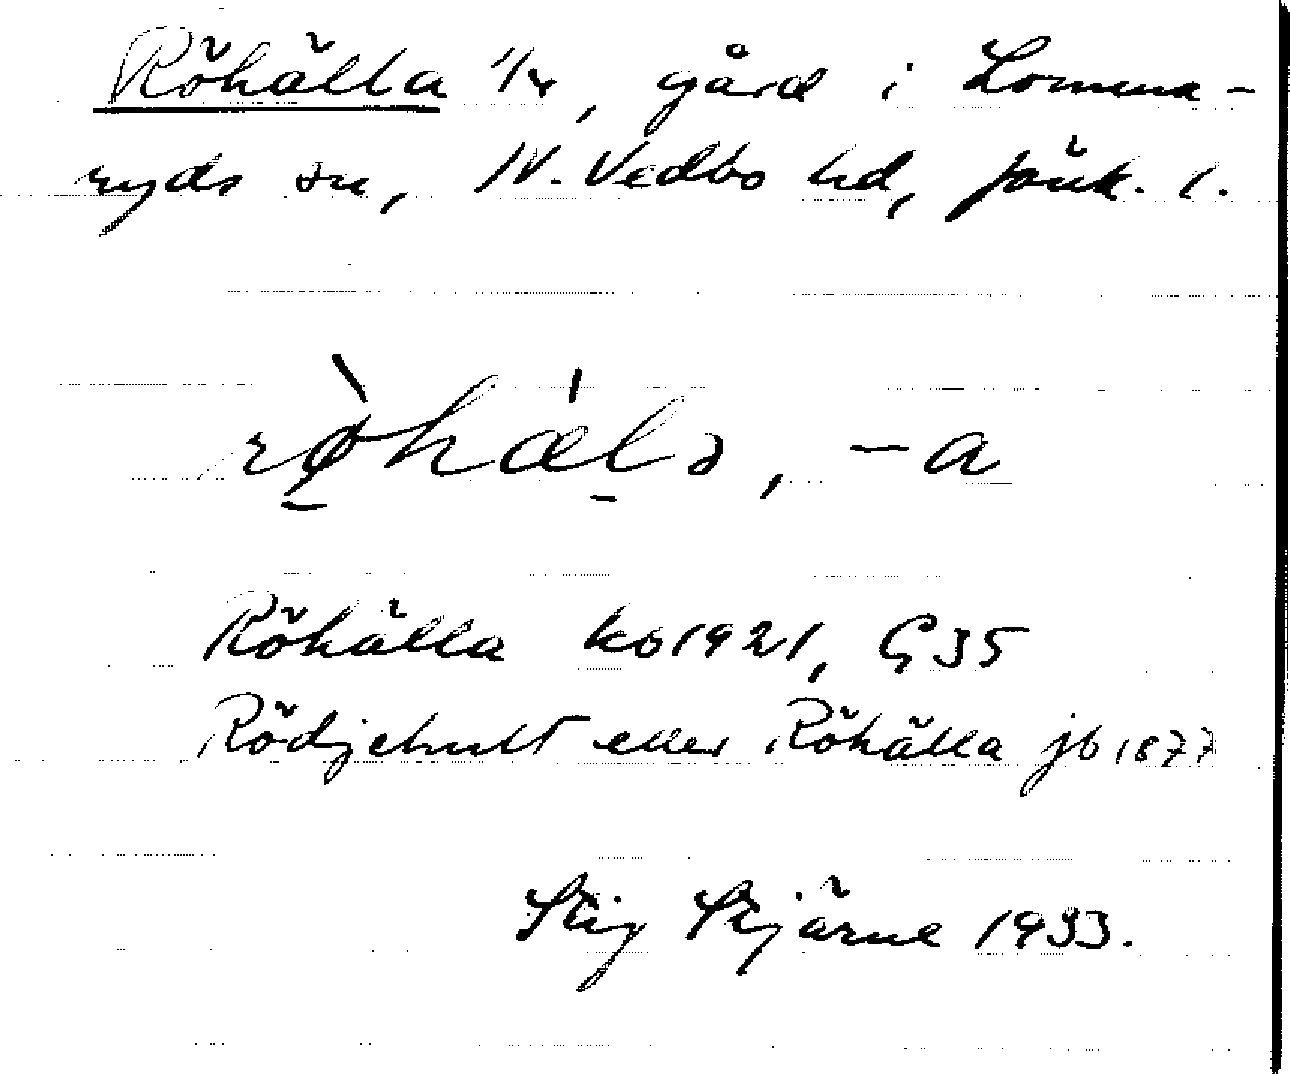 Röhälla 1/4, gård i Lomma-
ryds sn, N. Vedbo hd, Jönk. l.
rø̀hǽlə, -a
Röhälla ko 1921, G 35
Rödjehult eller Röhälla jb 1877
Stig Stjärne 1933.